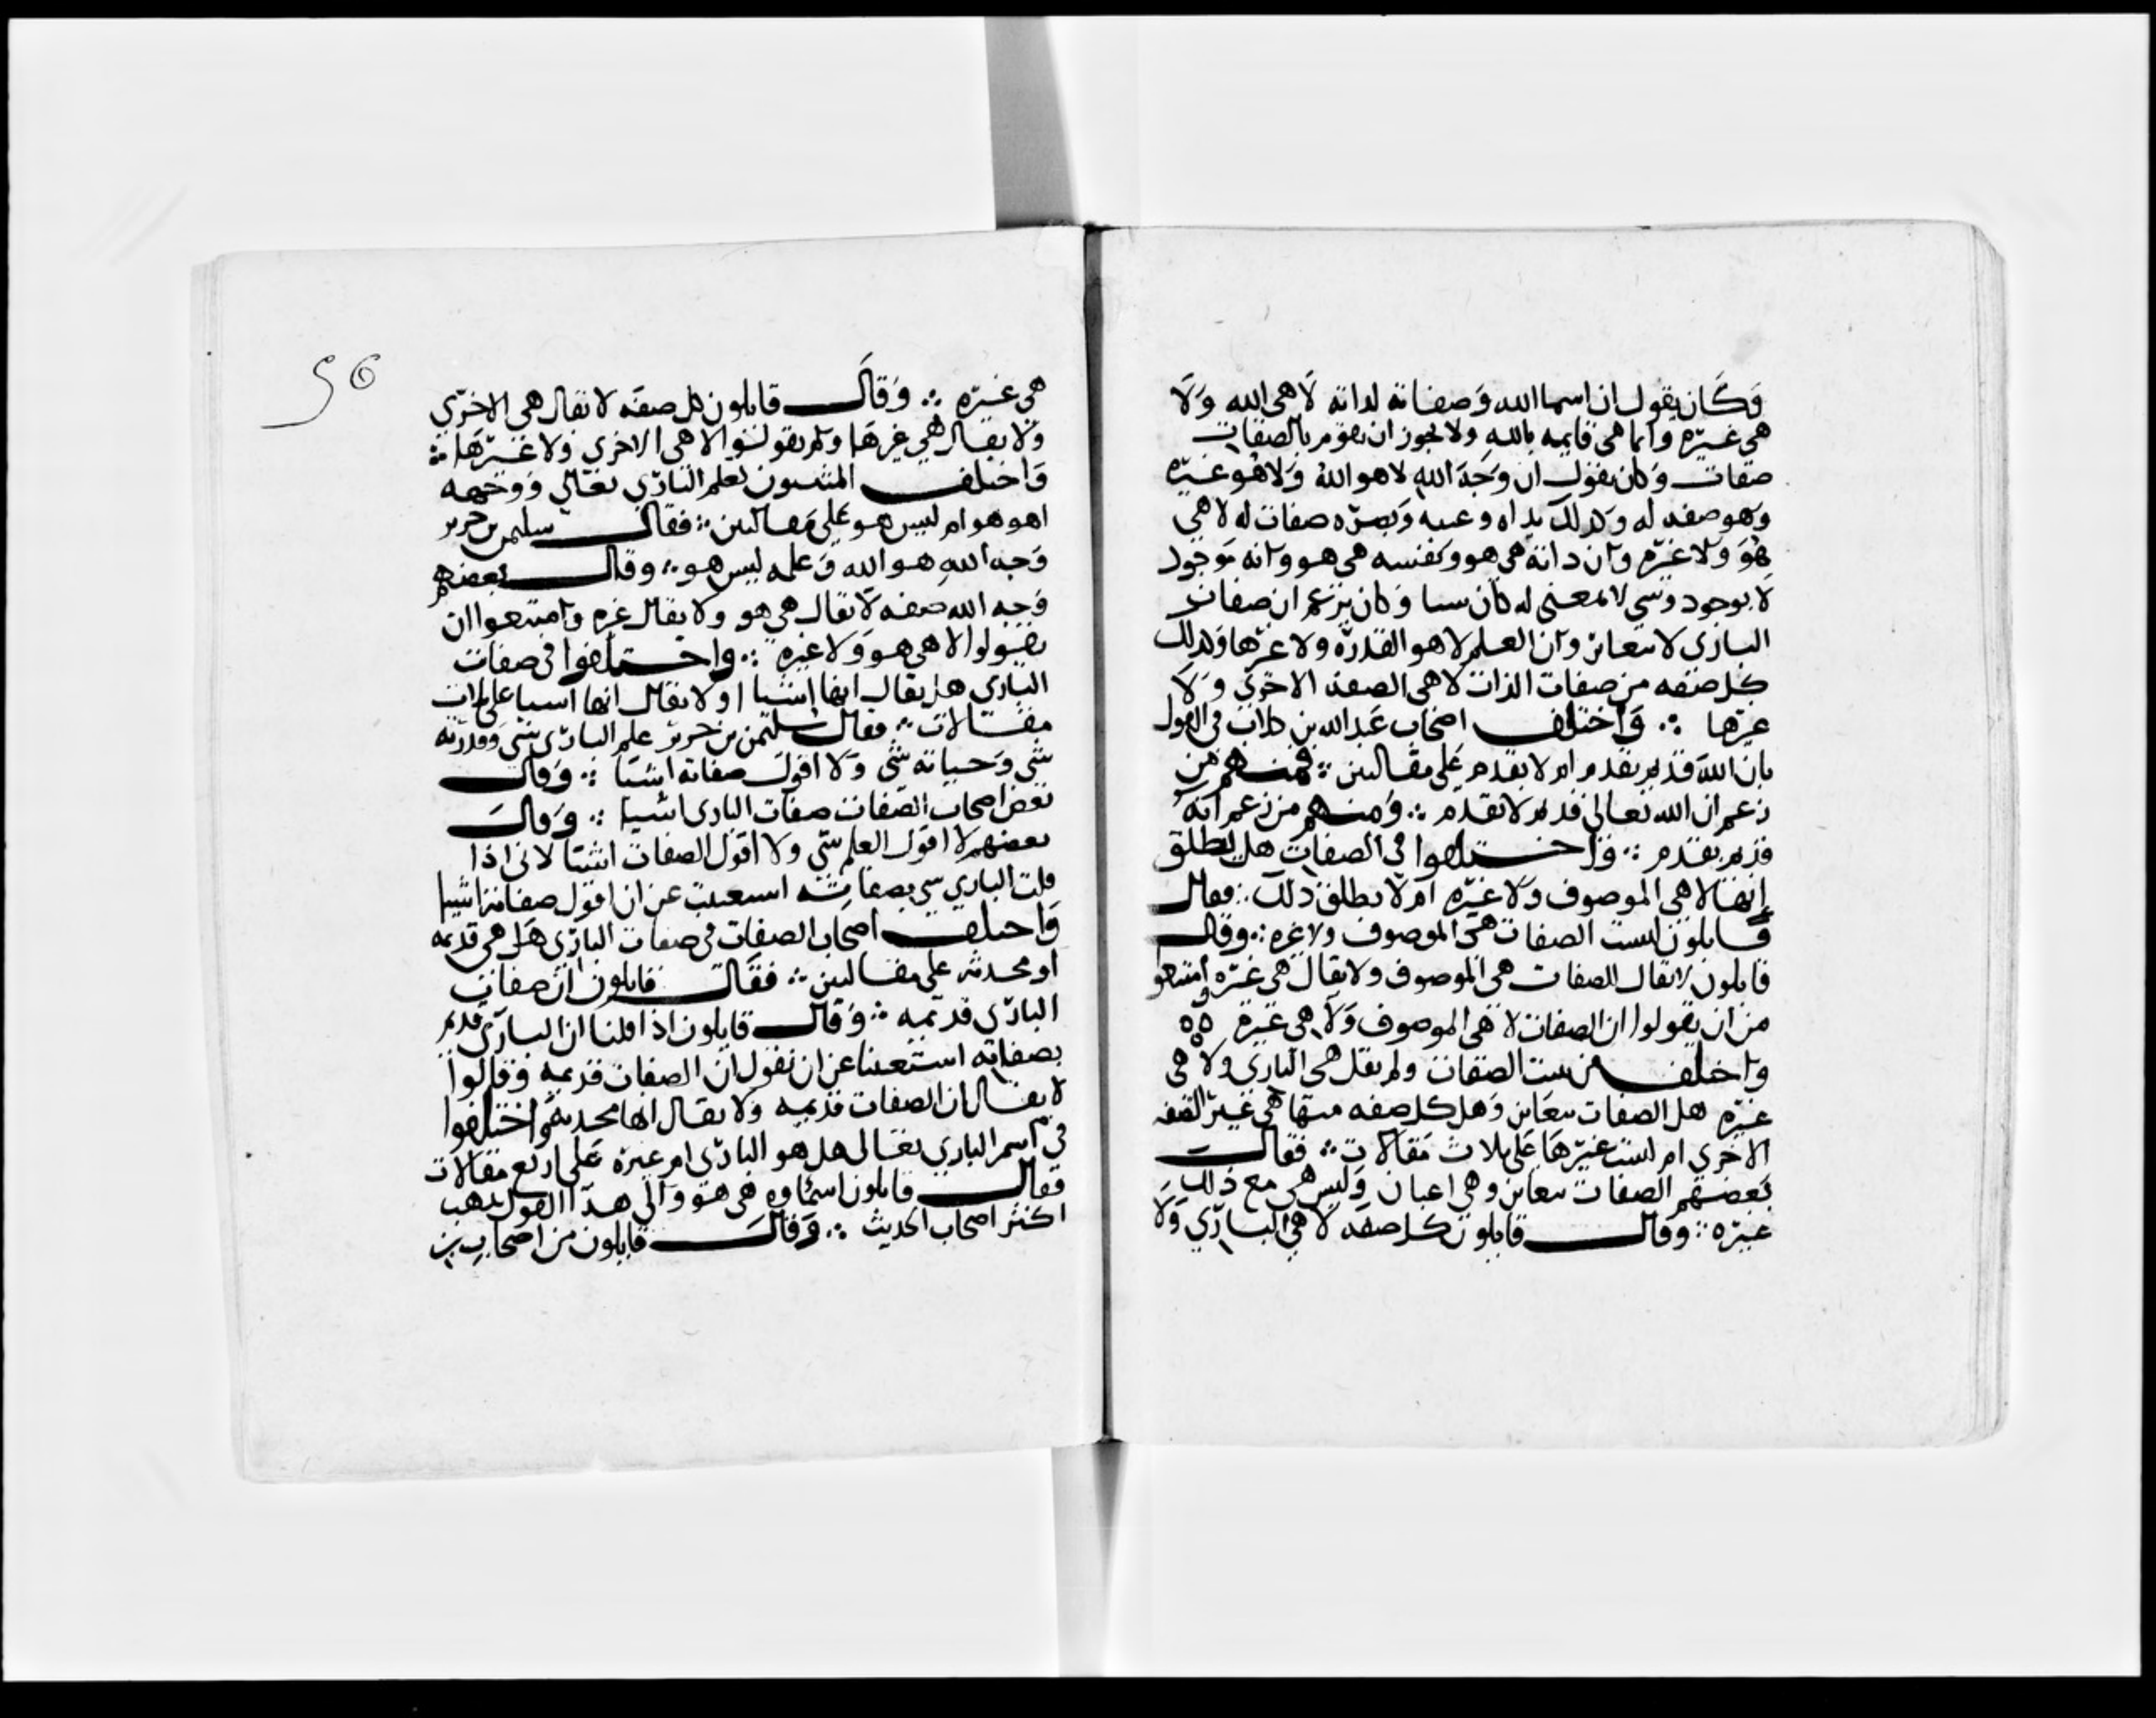 وكان يقول ان اسما الله وصفاته لذاته لا هى الله ولا
هى غيره وانما هى قايمه بالله ولا يجوز ان يقوم بالصفات
صفات وكان يقول ان وجه الله لا هو الله ولا هو غيره
وهو صفه له وكذلك يداه وعينه وبصره صفات له لا هى
هو ولا غيره وان ذاته هى هو ونفسه هى هو وانه موجود
لا بوجود وشي لا بمعنى له كان شيا وكان يزعم ان صفات
البارى لا تتغاير وان العلم لا هو القدره ولا غيرها وكذلك
كل صفه من صفات الذات لا هى الصفه الاخرى ولا
غيرها ؞ واختلف اصحاب عبد الله بن كلاب في القول
بان الله قديم بقدم ام لا بقدم على مقالتين ؞ فمنهم من
زعم ان الله تعالى قديم لا بقدم ؞ ومنهم من زعم انه
قديم بقدم ؞ واختلفوا في الصفات هل يطلق
انها لا هى الموصوف ولا غيره ام لا يطلق ذلك ؞ فقال
قايلون ليست الصفات هى الموصوف ولا غيره ؞ وقال
قايلون لا يقال للصفات هى الموصوف ولا يقال هى غيره وامتنعوا
من ان يقولوا ان الصفات لا هى الموصوف ولا هى غيره ه‍ه‍
واختلف من يثبت الصفات ولم يقل هى الباري ولا هى
غيره هل الصفات تتغاير وهل كل صفه منها هى غير الصفه
الاخرى ام ليست غيرها على ثلاث مقالات ؞ فقال
بعضهم الصفات تتغاير وهى اعيان وليس هى مع ذلك
غيره ؞ وقال قايلون كل صفه لا هى الباري ولا
56
هى غيره ؞ وقال قايلون كل صفه لا يقال هى الاخرى
ولا يقال هى غيرها ولم يقولوا لا هى الاخرى ولا غيرها ؞
واختلف المثبتون لعلم الباري تعالى ووجهه
اهو هو ام ليس هو على مقالتين ؞ فقال سليمن بن جرير
وجه الله هو الله وعلمه ليس هو ؞ وقال بعضهم
وجه الله صفه لا يقال هى هو ولا يقال غيره وامتنعوا ان
يقولوا لا هى هو ولا غيره ؞ واختلفوا في صفات
الباري هل يقال انها اشيا او لا يقال انها اشيا على ثلاث
مقالات ؞ فقال سليمن بن جرير علم الباري شي وقدرته
شي وحياته شي ولا اقول صفاته اشيا ؞ وقال
بعض اصحاب الصفات صفات البارى اشيا ؞ وقال
بعضهم لا اقول العلم شي ولا اقول الصفات اشيا لاني اذا
قلت الباري شي بصفاته استغنيت عن ان اقول صفاته اشيا
واختلف اصحاب الصفات في صفات الباري هل هى قديمه
او محدثه على مقالتين ؞ فقال قايلون ان صفات
الباري قديمه ؞ وقال قايلون اذا قلنا ان الباري قديم
بصفاته استغنينا عن ان نقول ان الصفات قديمه وقالوا
لا يقال ان الصفات قديمه ولا يقال انها محدثه واختلفوا
في اسم الباري تعالى هل هو الباري ام غيره على اربع مقالات
فقال قايلون اسماوه هى هو والى هذا القول يذهب
اكثر اصحاب الحديث ؞ وقال قايلون من اصحاب بن